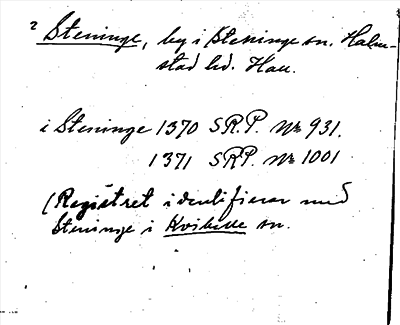 2 Steninge, by i Steninge sn. Halm-
stad hd. Hall.
i Steninge 1370 SRP. Nr 931.
1371 SRP. Nr 1001
(Registret identifierar med
Steninge i Kvibille sn.